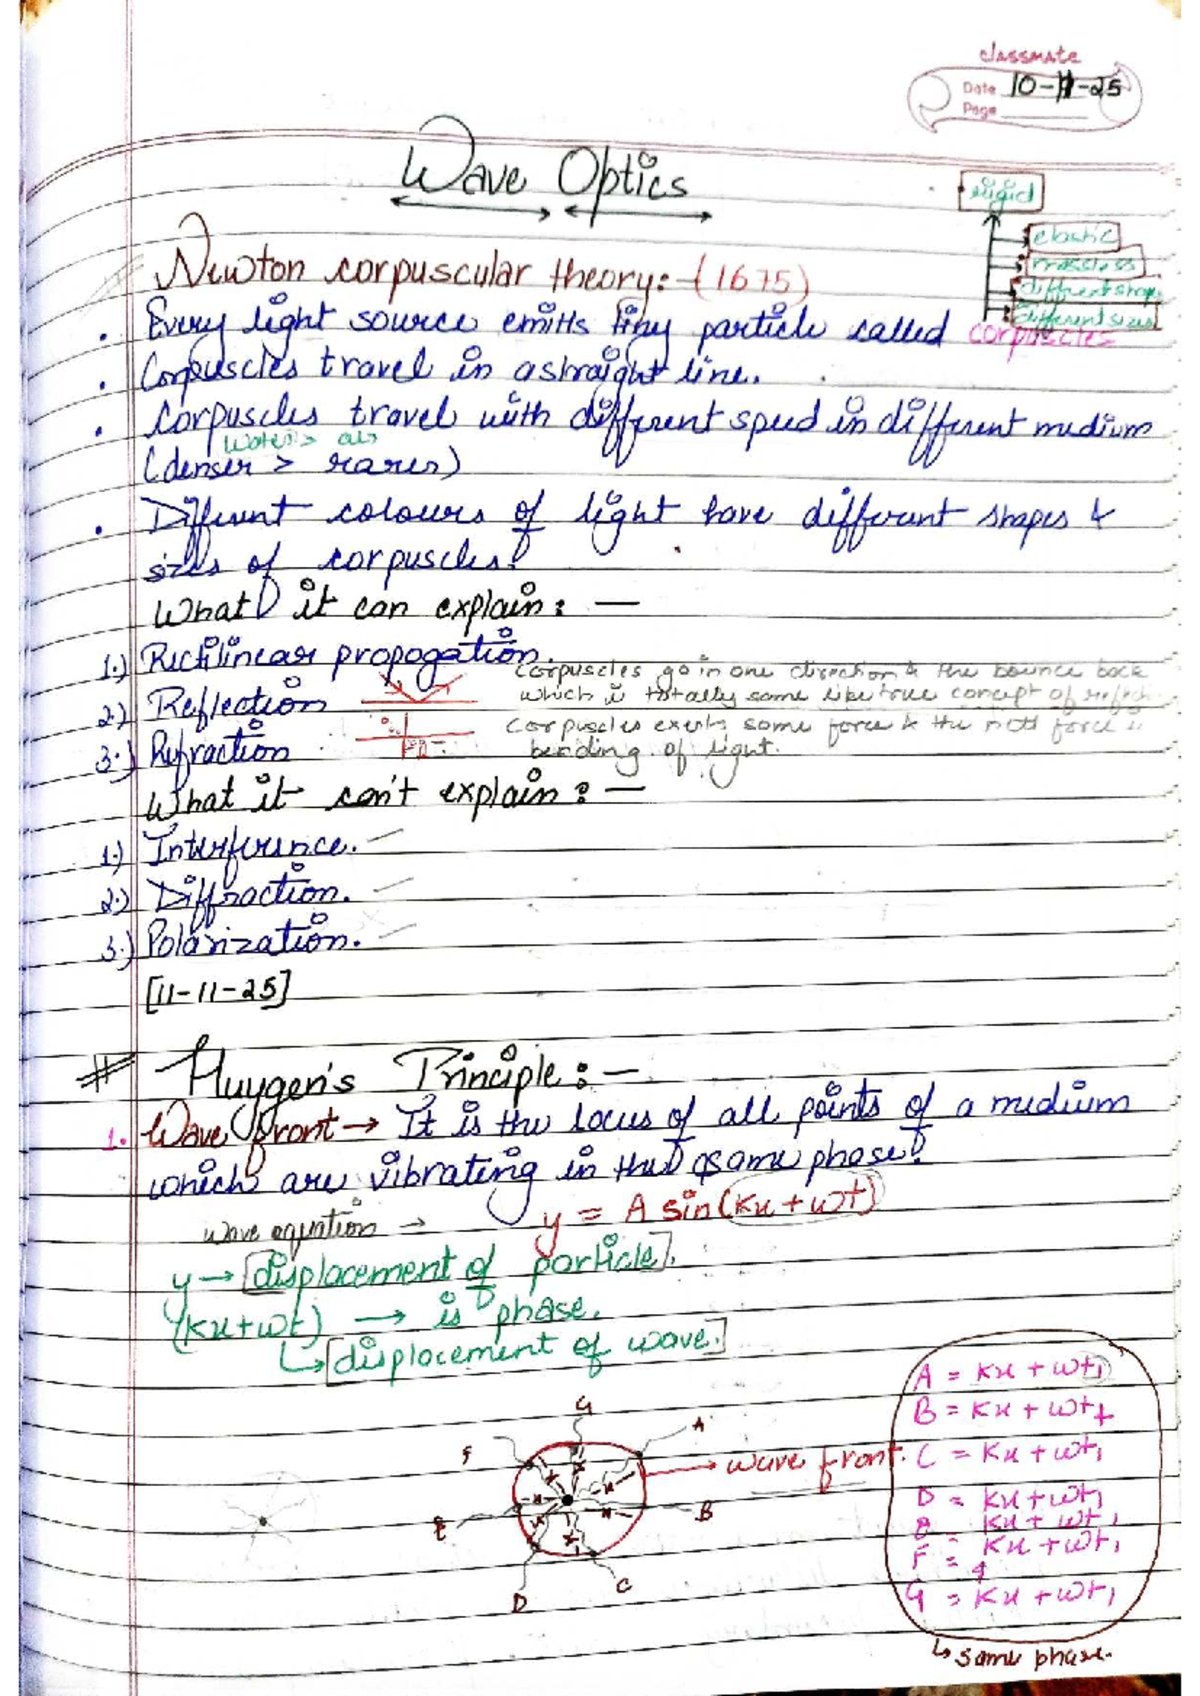 classmate
Date 10-11-25
Page
Wave Optics
rigid
elastic
massless
different shape
different sizes
Newton corpuscular theory:-(1675)
• Every light source emitts tiny particle called corpuscles
• Corpuscles travel in a straight line.
• Corpuscles travel with different speed in different medium
water > air
(denser > rarer)
• Different colours of light have different shapes &
sizes of corpuscles.
What it can explain: —
1.) Rictilinear propogation.
corpuscles go in one direction & the bounce back
2.) Reflection
which is totally same like true concept of reflec
corpuscles exerts some force & the nett force is
3.) Refraction
bending of light.
What it can't explain: —
1.) Interference.
2.) Diffraction.
3.) Polarization.
[11-11-25]
# Huygen's Principle: —
1. Wave front → It is the locus of all points of a medium
which are vibrating in the same phase.
wave equation → y = A sin(kx + wt)
y → displacement of particle.
(kx+wt) → is phase.
↳ displacement of wave.
G
A
F
wave front.
B
E
C
D
A = kx + wt₁
B = kx + wt₁
C = kx + wt₁
D = kx + wt₁
E = kx + wt₁
F = kx + wt₁
G = kx + wt₁
↳ same phase.